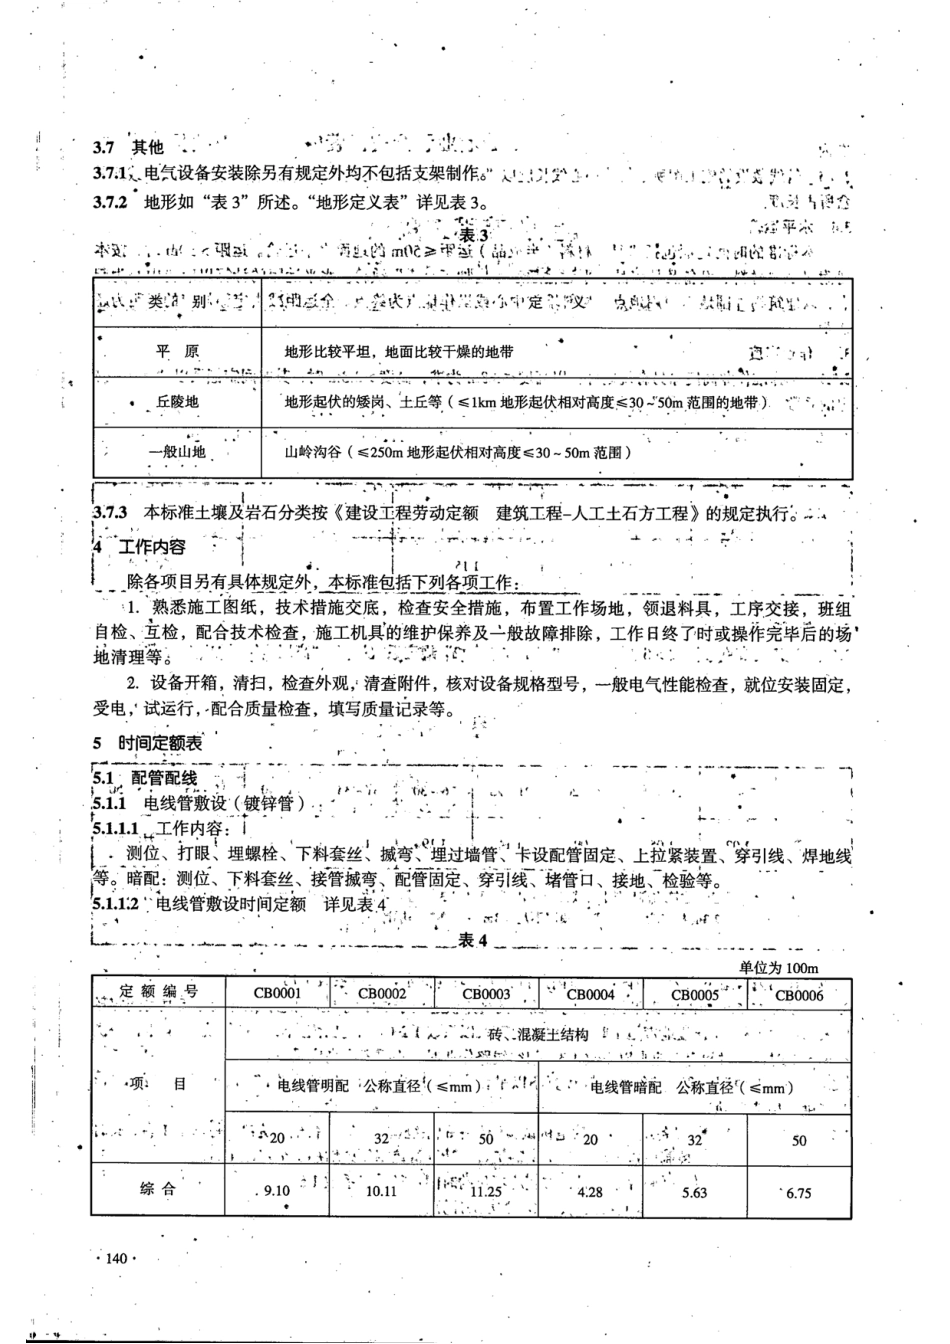 3.7 其他
3.7.1 电气设备安装除另有规定外均不包括支架制作。
3.7.2 地形如“表3”所述。“地形定义表”详见表3。
表3
类 别 定 义
平 原 地形比较平坦，地面比较干燥的地带
丘陵地 地形起伏的矮岗、土丘等（≤1km 地形起伏相对高度≤30～50m 范围的地带）
一般山地 山岭沟谷（≤250m 地形起伏相对高度≤30～50m 范围）
3.7.3 本标准土壤及岩石分类按《建设工程劳动定额 建筑工程–人工土石方工程》的规定执行。
4 工作内容
除各项目另有具体规定外，本标准包括下列各项工作：
1. 熟悉施工图纸，技术措施交底，检查安全措施，布置工作场地，领退料具，工序交接，班组
自检、互检，配合技术检查，施工机具的维护保养及一般故障排除，工作日终了时或操作完毕后的场
地清理等。
2. 设备开箱，清扫，检查外观，清查附件，核对设备规格型号，一般电气性能检查，就位安装固定，
受电，试运行，配合质量检查，填写质量记录等。
5 时间定额表
5.1 配管配线
5.1.1 电线管敷设（镀锌管）
5.1.1.1 工作内容：
测位、打眼、埋螺栓、下料套丝、揻弯、埋过墙管、卡设配管固定、上拉紧装置、穿引线、焊地线
等。暗配：测位、下料套丝、接管揻弯、配管固定、穿引线、堵管口、接地、检验等。
5.1.1.2 电线管敷设时间定额 详见表4
表4
单位为 100m
定 额 编 号 CB0001 CB0002 CB0003 CB0004 CB0005 CB0006
砖、混凝土结构
项 目 电线管明配 公称直径（≤mm） 电线管暗配 公称直径（≤mm）
20 32 50 20 32 50
综 合 9.10 10.11 11.25 4.28 5.63 6.75
·140·